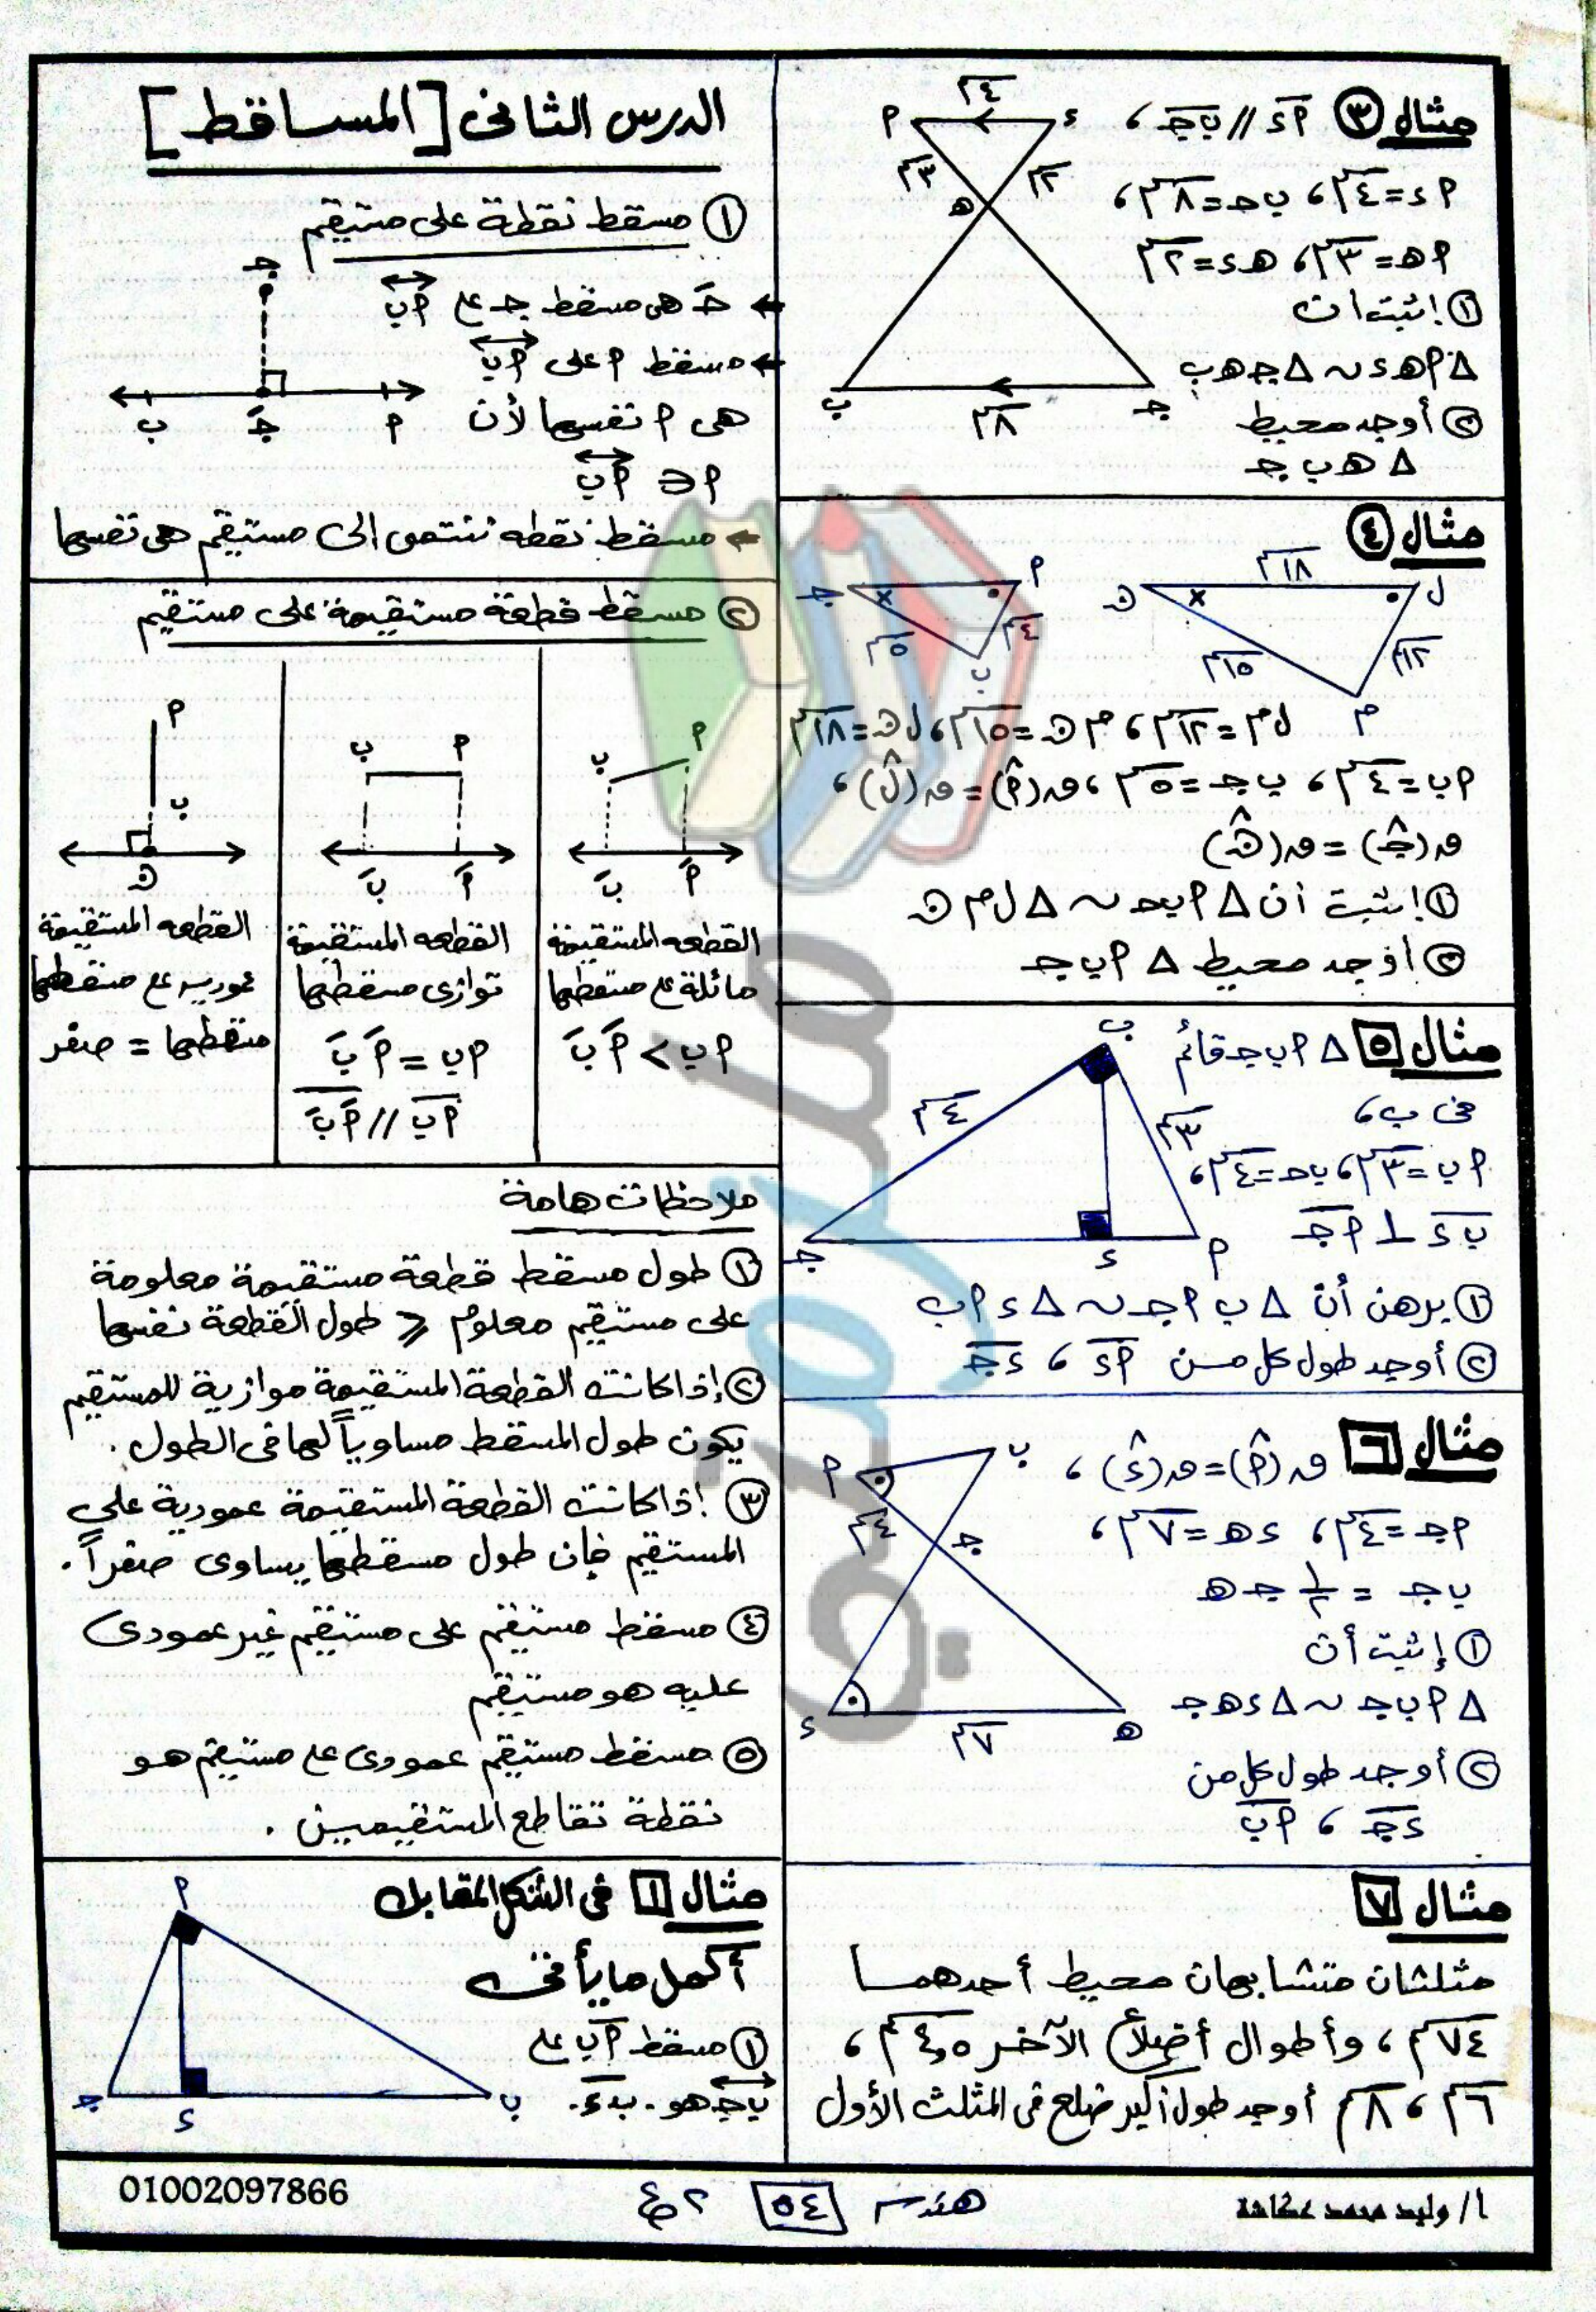 مثال ③ أء // بجـ ،
أء = ٤سم ، بحـ = ٨سم ،
أهـ = ٣سم ، هـء = ٢سم
① إثبت أن
Δ أهـء ~ Δ جـهـب
② أوجد محيط
Δ هـ ب جـ
٤سم
أ ء
٣سم ٢سم
هـ
ب جـ
٨سم
مثال ④
١٨سم
ل ن
أ جـ
١٢سم ١٥سم
٤سم ٥سم
م ب
ل م = ١٢سم ، م ن = ١٥سم ، ل ن = ١٨سم
أب = ٤سم ، ب جـ = ٥سم ، ق(أ) = ق(ل) ،
ق(جـ) = ق(ن)
① إثبت أن Δ أبحـ ~ Δ ل م ن
② أوجد محيط Δ أب جـ
مثال ٥ Δ أب جـ قائم
فى ب ،
أب = ٣سم ، بحـ = ٤سم ،
بء ⊥ أجـ
ب
٤سم ٣سم
جـ ء أ
① برهن أن Δ ب أحـ ~ Δ ء أب
② أوجد طول كل من أء ، ءجـ
مثال ٦ ق(أ) = ق(ء) ،
أجـ = ٤سم ، ءهـ = ٧سم ،
ب جـ = ١/٢ جـ هـ
① إثبت أن
Δ أب جـ ~ Δ ءهـ جـ
② أوجد طول كل من
ءجـ ، أب
أ ب
٤سم جـ
ء هـ
٧سم
مثال ٧
مثلثان متشابهان محيط أحدهما
٧٤سم ، وأطوال أضلاع الآخر ٤,٥سم ،
٦سم ، ٨سم أوجد طول أكبر ضلع فى المثلث الأول
الدرس الثانى [المساقط]
① مسقط نقطة على مستقيم
← جـَ هى مسقط جـ على أب
← مسقط أ على أب
هى أ نفسها لأن
أ ∈ أب
جـ
ب جـَ أ
← مسقط نقطه تنتمى إلى مستقيم هى نفسها
② مسقط قطعة مستقيمة على مستقيم
أ ب
أَ بَ
القطعه المستقيمة
مائلة على مسقطها
أب > أَ بَ
أ ب
أَ بَ
القطعه المستقيمة
توازى مسقطها
أب = أَ بَ
أب // أَ بَ
أ
ب
ن
القطعه المستقيمة
عموديه على مسقطها
مسقطها = صفر
ملاحظات هامة
① طول مسقط قطعة مستقيمة معلومة
على مستقيم معلوم ⩽ طول القطعة نفسها
② إذا كانت القطعة المستقيمة موازية للمستقيم
يكون طول المسقط مساوياً لها فى الطول .
③ إذا كانت القطعة المستقيمة عمودية على
المستقيم فإن طول مسقطها يساوى صفراً .
④ مسقط مستقيم على مستقيم غير عمودى
عليه هو مستقيم
⑤ مسقط مستقيم عمودى على مستقيم هو
نقطة تقاطع المستقيمين .
مثال ١ فى الشكل المقابل
أكمل ما يأتى
① مسقط أب على
بجـ هو . بء .
أ
جـ ء ب
أ/ وليد محمد عكاشة
هندسه ٥٤ ٢ع
01002097866